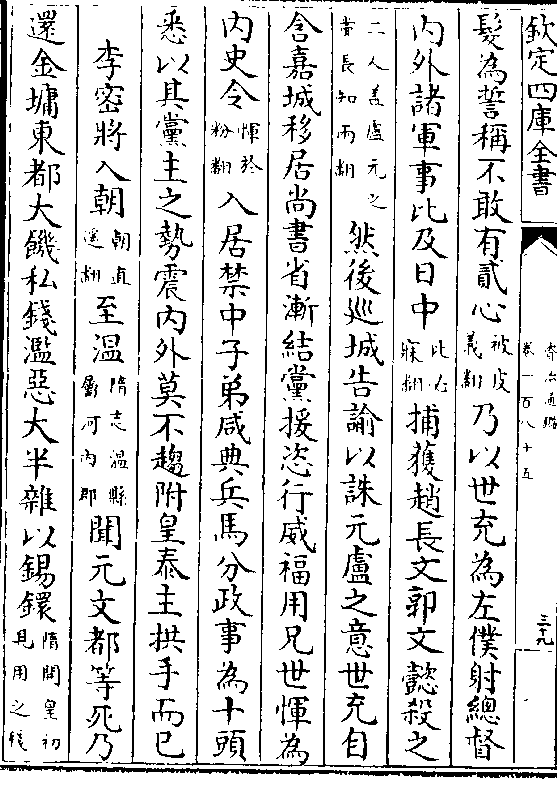 欽定四庫全書
資治通鑑
卷一百八十五
三十九
髮為誓稱不敢有貳心被皮義翻乃以世充為左僕射總督
内外諸軍事比及日中比必寐翻捕獲趙長文郭文懿殺之
二人盖盧元之黨長知兩翻然後巡城告諭以誅元盧之意世充自
含嘉城移居尚書省漸結黨援恣行威福用兄世惲為
内史令惲於粉翻入居禁中子弟咸典兵馬分政事為十頭
悉以其黨主之勢震内外莫不趨附皇泰主拱手而已
李密將入朝朝直遥翻至温隋志温縣屬河内郡聞元文都等死乃
還金墉東都大饑私錢濫惡大半雜以錫鐶隋開皇初見用之錢